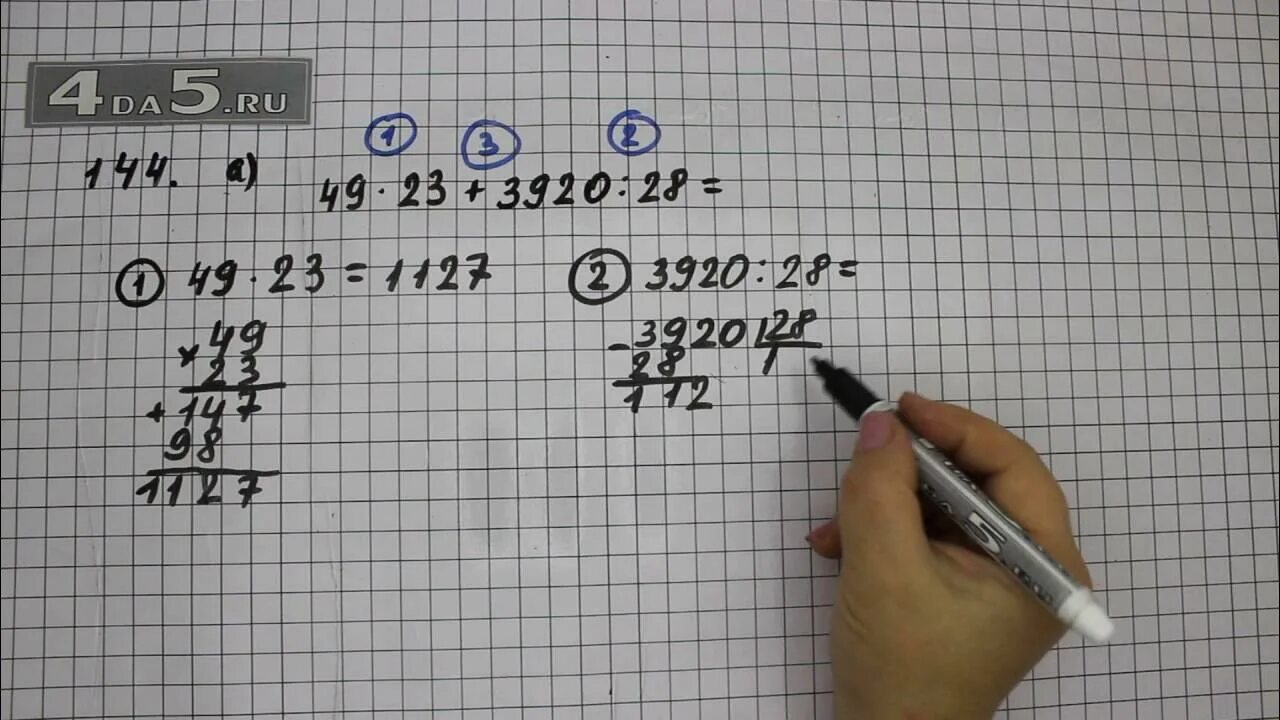 4DA5.RU
1 3 2
144. a) 49 · 23 + 3920 : 28 =
1 49 · 23 = 1127
× 49
23
+ 147
98
1127
2 3920 : 28 =
- 3920 28
28 1
112